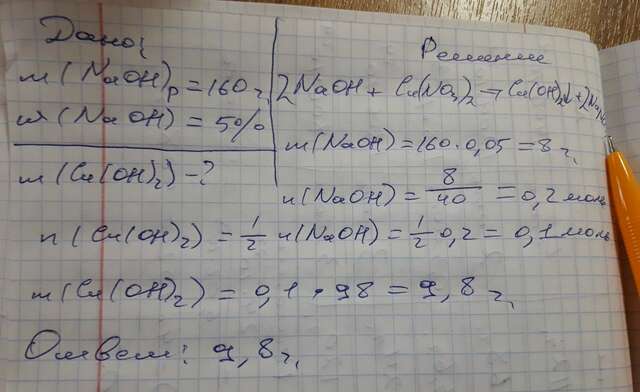 Дано:
m(NaOH)р = 160 г.
w(NaOH) = 5%
m(Cu(OH)₂) - ?
Решение
2NaOH + Cu(NO₃)₂ → Cu(OH)₂↓ + 2Na
m(NaOH) = 160 · 0,05 = 8 г.
n(NaOH) = 8/40 = 0,2 моль
n(Cu(OH)₂) = 1/2 n(NaOH) = 1/2 0,2 = 0,1 моль
m(Cu(OH)₂) = 0,1 · 98 = 9,8 г.
Ответ: 9,8 г.